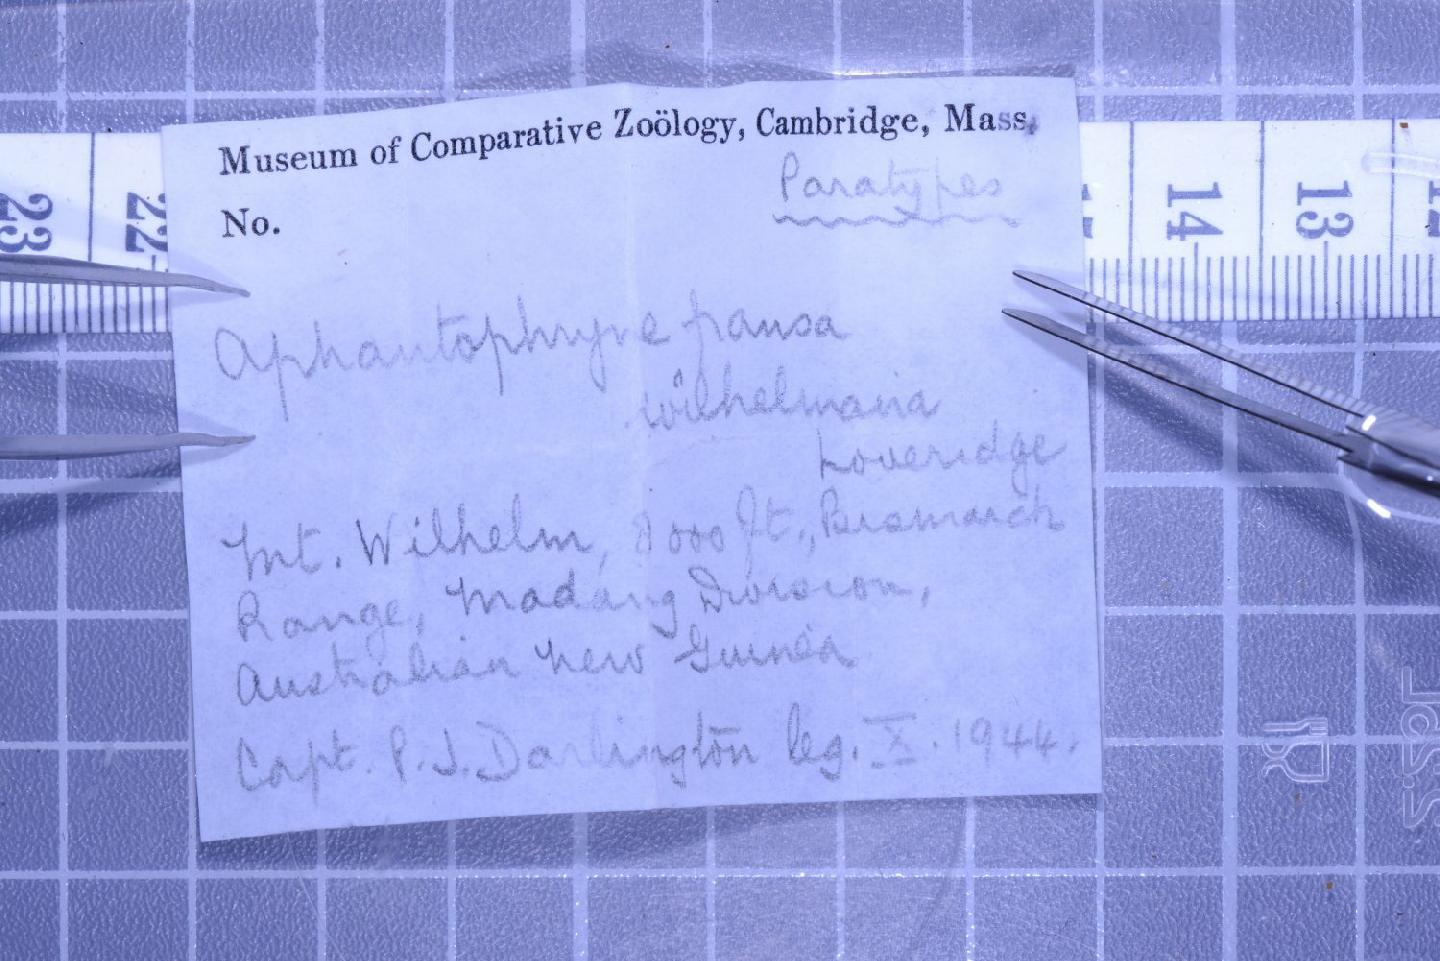 Museum of Comparative Zoölogy, Cambridge, Mass.
Paratypes
No.
Aphantophryne pansa
wilhelmana
Loveridge
Mt. Wilhelm, 8000 ft., Bismarck
Range, Madang Division,
Australian New Guinea
Capt. P.J. Darlington leg. X. 1944.
23
22
14
13
12